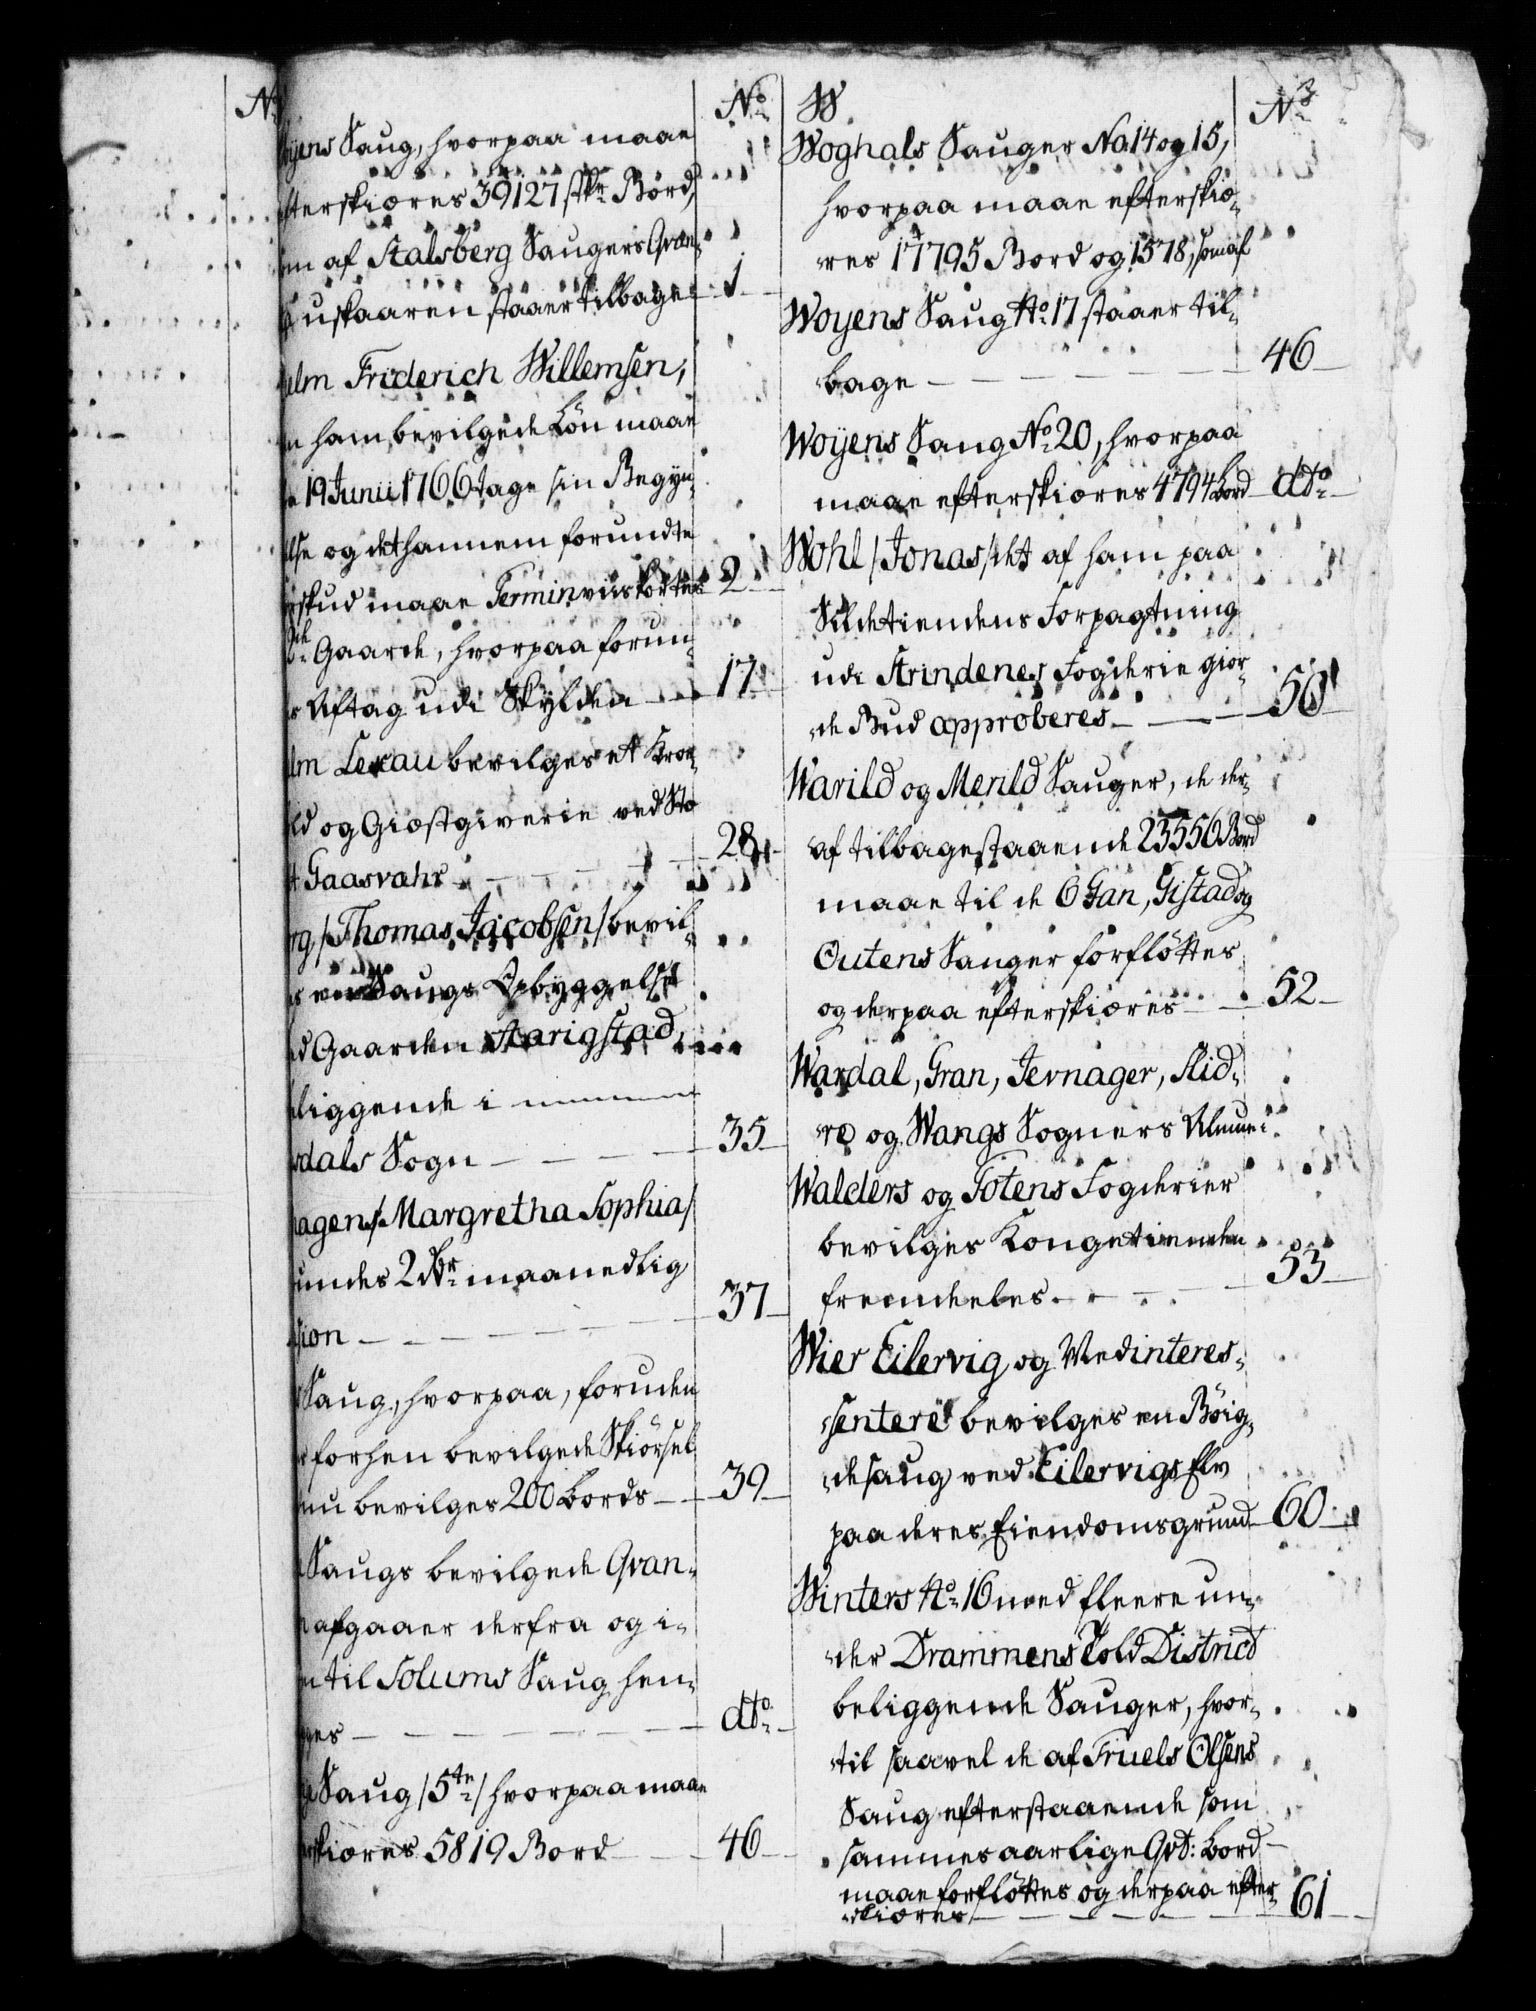 No
No
yens Saug, hvorpaa maae
efterskiæres 39127 stkr Bord,
som af Stalsberg Saugers Qvan-
uskaaren staaer tilbage 1
elm Friderich Willemsen,
ham bevilgede Løn maae
19 Junii 1766 tage sin Begyn-
else og det hannem forundte
skud maae Terminviis kortes 2
Gaarde, hvorpaa forun-
Aftag udi Skylden 17
elm Lexau bevilges et Kroe-
ld og Giæstgiverie ved Sto
Gaasvahr 28
rg /Thomas Jacobsen/ bevil-
Saugs Opbyggelse
ed Gaarden Aarigstad
beliggende i
dals Sogn 35
hagen /Margretha Sophia/
undes 2 dlr maanedlig
sion 37
Saug, hvorpaa, foruden
forhen bevilgede Skiørsel
nu bevilges 200 bords 39
Saugs bevilgede Qvan-
afgaaer derfra og i-
til Solums Saug hen-
ges dto
Saug /5te/ hvorpaa maae
skiæres 5819 Bord 46
W. No
Woghals Sauger No 14 og 15,
hvorpaa maae efterskiæ-
res 17795 Bord og 1578, som af
Woyens Saug No 17 staaer til-
bage 46
Woyens Saug No 20, hvorpaa
maae efterskiæres 4794 bord dto
Wohl /Jonas/ det af ham paa
Sildetiendens Forpagtning
udi Strindenes Fogderie gior-
de Bud approberes 50
Warild og Merild Sauger, de der-
af tilbagestaaende 23556 Bord
maae til de 6 Gan, Gistad og
Outens Sauger forfløttes
og derpaa efterskiæres 52
Wardal, Gran, Jevnager, Slid-
re og Wangs Sogners Almue i
Walders og Totens Fogderier
bevilges Kongetienden
fremdeles 53
Wier Eilervig og Medinteres-
sentere bevilges en Bøig-
desaug ved Eilervigs Elv
paa deres Eiendomsgrund 60
Winters No 16 med fleere un-
der Drammens Told District
beliggende Sauger, hvor-
til saavel de af Truels Olsens
Saug efterstaaende som
sammes aarlige Qvt: bord
maae forfløttes og derpaa efter-
skiæres 61